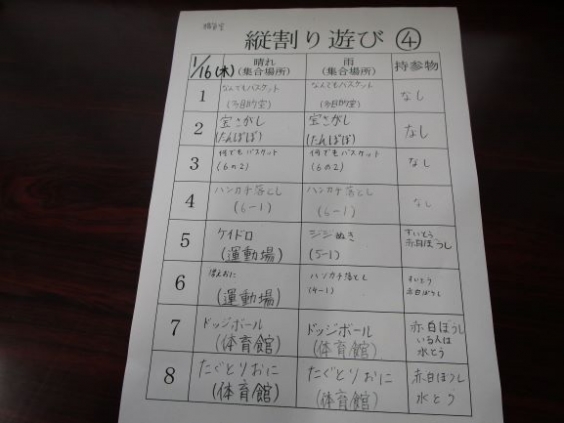 縦割り遊び ④
1/16(木) 晴れ 雨 持参物
(集合場所) (集合場所)
1 なんでもバスケット なんでもバスケット なし
(多目的室) (多目的室)
2 宝さがし 宝さがし なし
(たんぽぽ) (たんぽぽ)
3 何でもバスケット 何でもバスケット なし
(6の2) (6の2)
4 ハンカチ落とし ハンカチ落とし なし
(6-1) (6-1)
5 ケイドロ ジジぬき すいとう
(運動場) (5-1) 赤白ぼうし
6 ハンカチ落とし すいとう
(運動場) (4-1) 赤白ぼうし
7 ドッジボール ドッジボール 赤白ぼうし
(体育館) (体育館) いる人は
水とう
8 たぐとりおに たぐとりおに 赤白ぼうし
(体育館) (体育館) 水とう